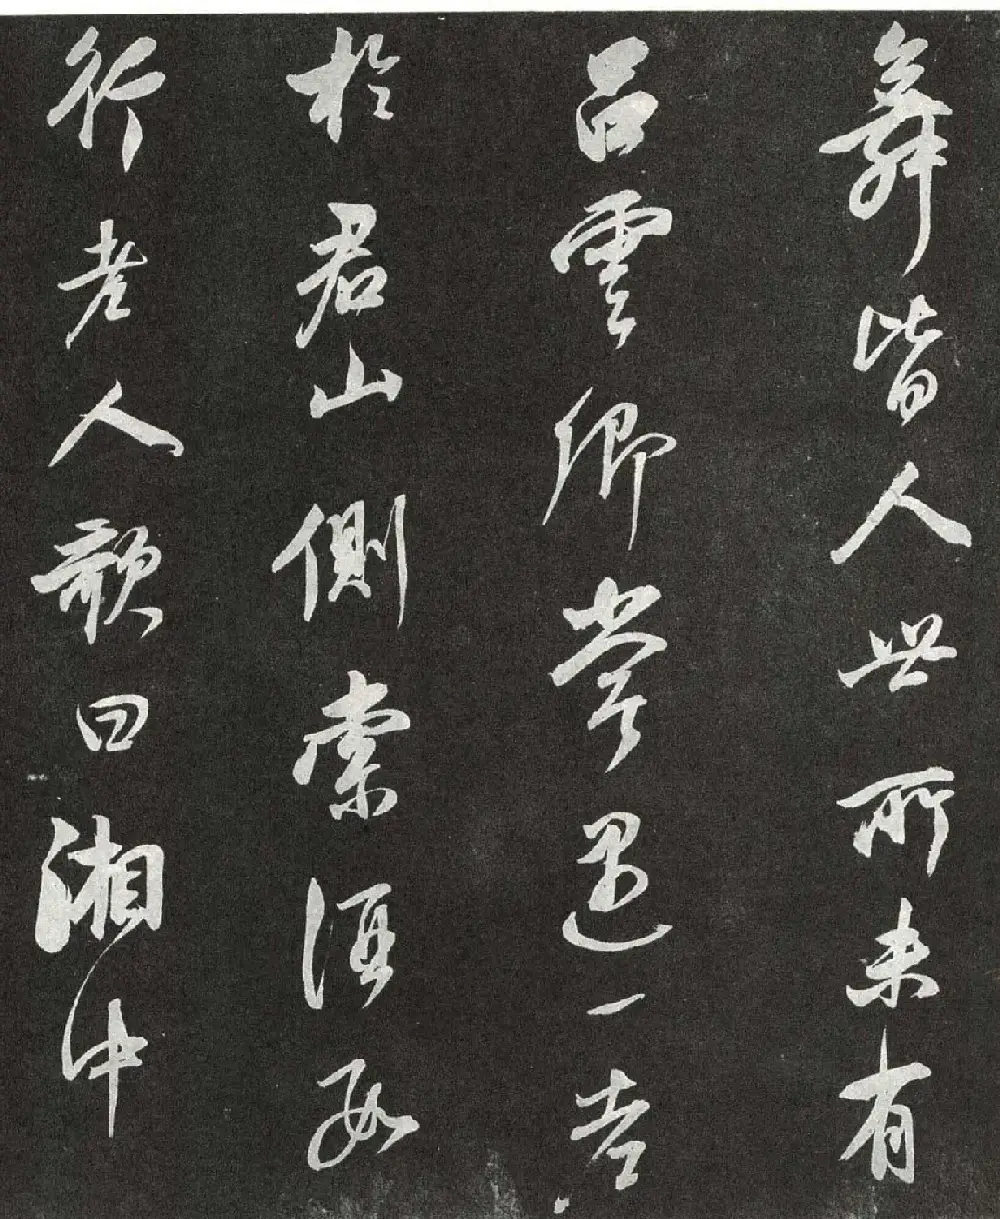 舞皆人世所未有
呂雲卿嘗遇一老
於君山側索酒數
行老人歌曰湘中